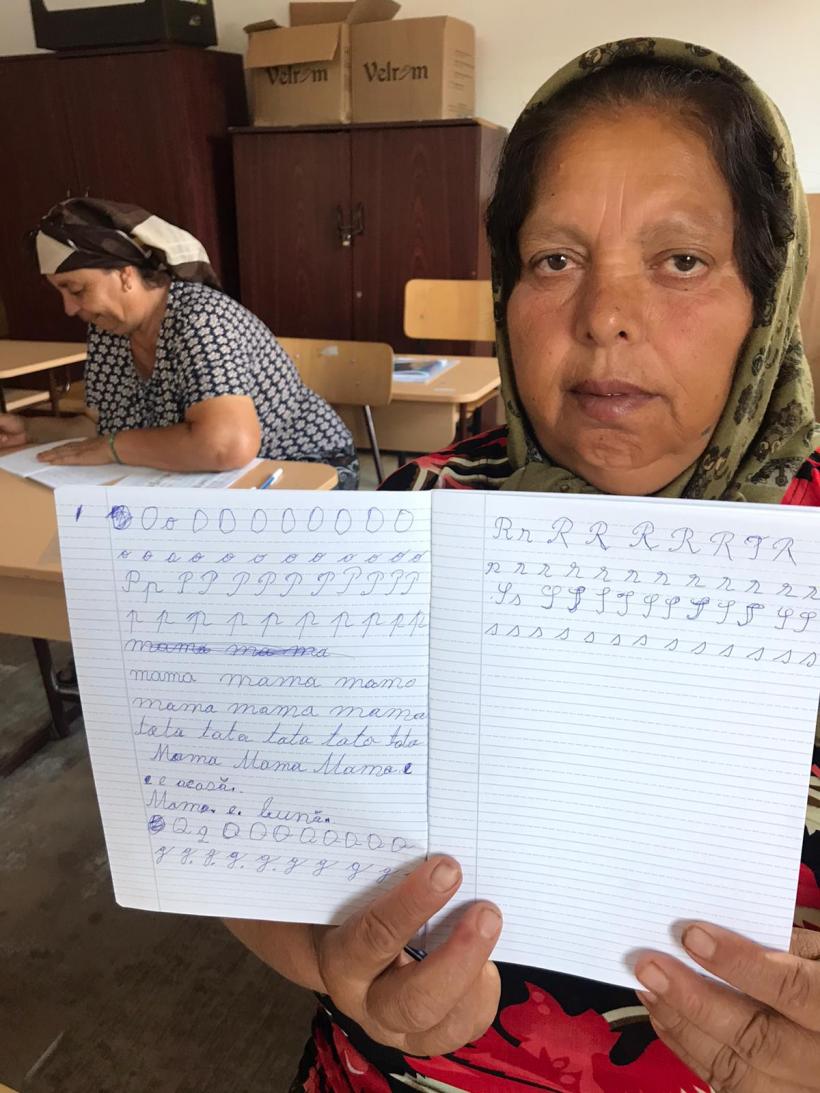 Velrom Velrom
O o O O O O O O O O
o o o o o o o o o o o o
P p P P P P P P P P P
p p p p p p p p p
mama mama
mama mama mama
mama mama mama
tata tata tata tata tata
Mama Mama Mama e
e e acasă.
Mama e bună.
Q q Q Q Q Q Q Q Q
q q q q q q q q
R r R R R R R R
r r r r r r r r r r r
S s S S S S S S S S S S
s s s s s s s s s s s s